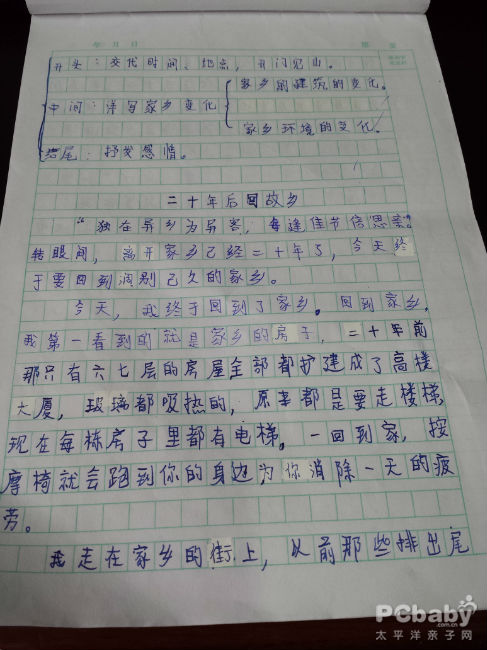 年 月 日
开头：交代时间、地点，开门见山。
家乡的建筑的变化。
中间：详写家乡变化
家乡环境的变化。
结尾：抒发感情。
二十年后回故乡
“独在异乡为异客，每逢佳节倍思亲”
转眼间，离开家乡已经二十年了，今天终
于要回到阔别已久的家乡。
今天，我终于回到了家乡。回到家乡，
我第一看到的就是家乡的房子，二十年前
那只有六七层的房屋全部都扩建成了高楼
大厦，玻璃都吸热的，原来都是要走楼梯，
现在每栋房子里都有电梯。一回到家，按
摩椅就会跑到你的身边为你消除一天的疲
劳。
我走在家乡的街上，以前那些排出尾
PCbaby
.com.cn
太平洋亲子网